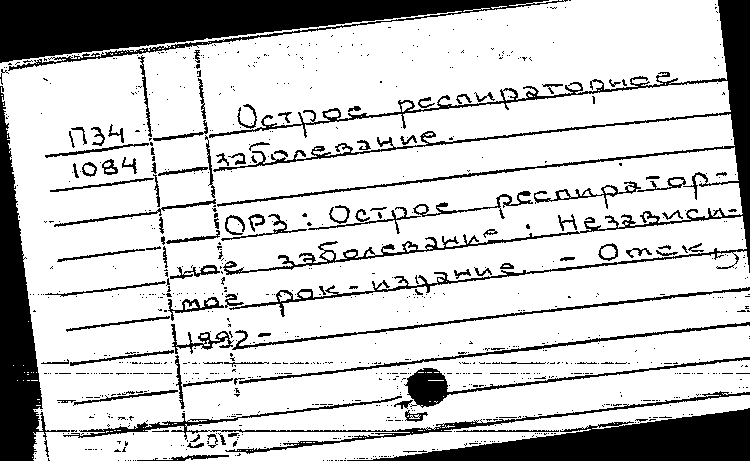 П34-
1084
Острое респираторное
заболевание.
ОРЗ: Острое респиратор-
ное заболевание: Независи-
мое рок-издание. - Отск,
1992-
2017